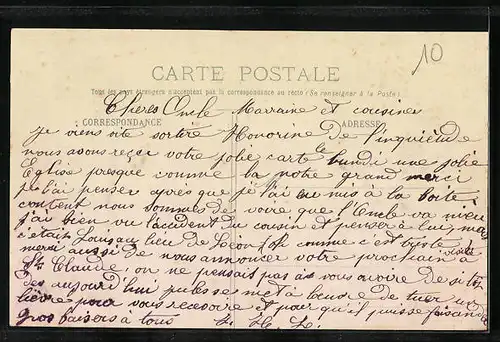 10
CARTE POSTALE
Tous les pays étrangers n'acceptent pas la correspondance au recto (Se renseigner à la Poste)
Chères Oncle Marraine et cousine
CORRESPONDANCE ADRESSE
je viens vite sortir Honorine de l'inquiétude
nous avons reçu votre jolie carte le lundi une jolie
Eglise presque comme la notre grand merci
je l'ai penser après que je l'ai eu mis à la boite
content nous sommes de voire que l'Oncle va mieu
j'ai bien vu l'accident du cousin et penser à lui mais
c'était Louis au lieu de Léon comme c'est triste
merci aussi de nous annoncer votre prochain visite
St Claude on ne pensais pas vous avoire de si tôt
des aujourd'hui met à
lièvre pour vous recevoire et pour qu'il puisse faisandé
gros baisers à tous